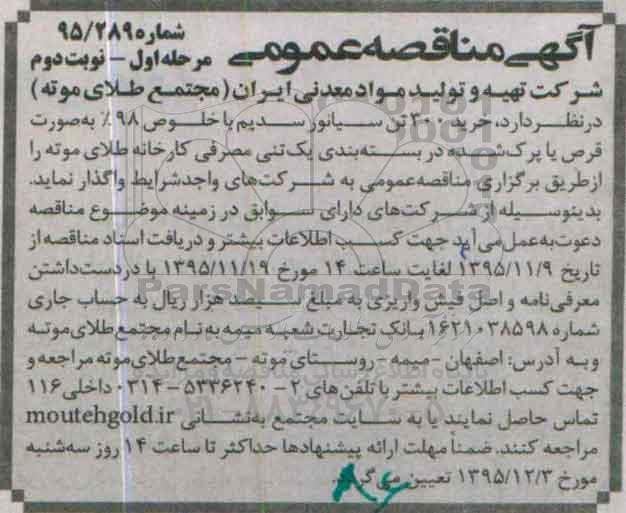 آگهی مناقصه عمومی
شماره ۹۵/۲۸۹
مرحله اول - نوبت دوم
شرکت تهیه و تولید مواد معدنی ایران (مجتمع طلای موته)
درنظر دارد، خرید ۳۰۰ تن سیانور سدیم با خلوص ۹۸٪ به‌صورت
قرص یا پرک‌شده در بسته‌بندی یک‌تنی مصرفی کارخانه طلای موته را
ازطریق برگزاری مناقصه‌عمومی به شرکت‌های واجدشرایط واگذار نماید.
بدینوسیله از شرکت‌های دارای سوابق در زمینه موضوع مناقصه
دعوت‌به‌عمل می‌آید جهت کسب اطلاعات بیشتر و دریافت اسناد مناقصه از
تاریخ ۱۳۹۵/۱۱/۹ لغایت ساعت ۱۴ مورخ ۱۳۹۵/۱۱/۱۹ با دردست‌داشتن
معرفی‌نامه و اصل فیش واریزی به مبلغ سیصد هزار ریال به حساب جاری
شماره ۱۶۲۱۰۳۸۵۹۸ بانک تجارت شعبه میمه به نام مجتمع طلای موته
وبه آدرس: اصفهان - میمه - روستای موته - مجتمع طلای موته مراجعه و
جهت کسب اطلاعات بیشتر با تلفن‌های ۲ - ۵۳۳۶۲۴۰ - ۰۳۱۴ داخلی ۱۱۶
تماس حاصل نمایند یا به سایت مجتمع به‌نشانی moutehgold.ir
مراجعه کنند. ضمناً مهلت ارائه پیشنهادها حداکثر تا ساعت ۱۴ روز سه‌شنبه
مورخ ۱۳۹۵/۱۲/۳ تعیین می‌گردد.
ParsNamadData